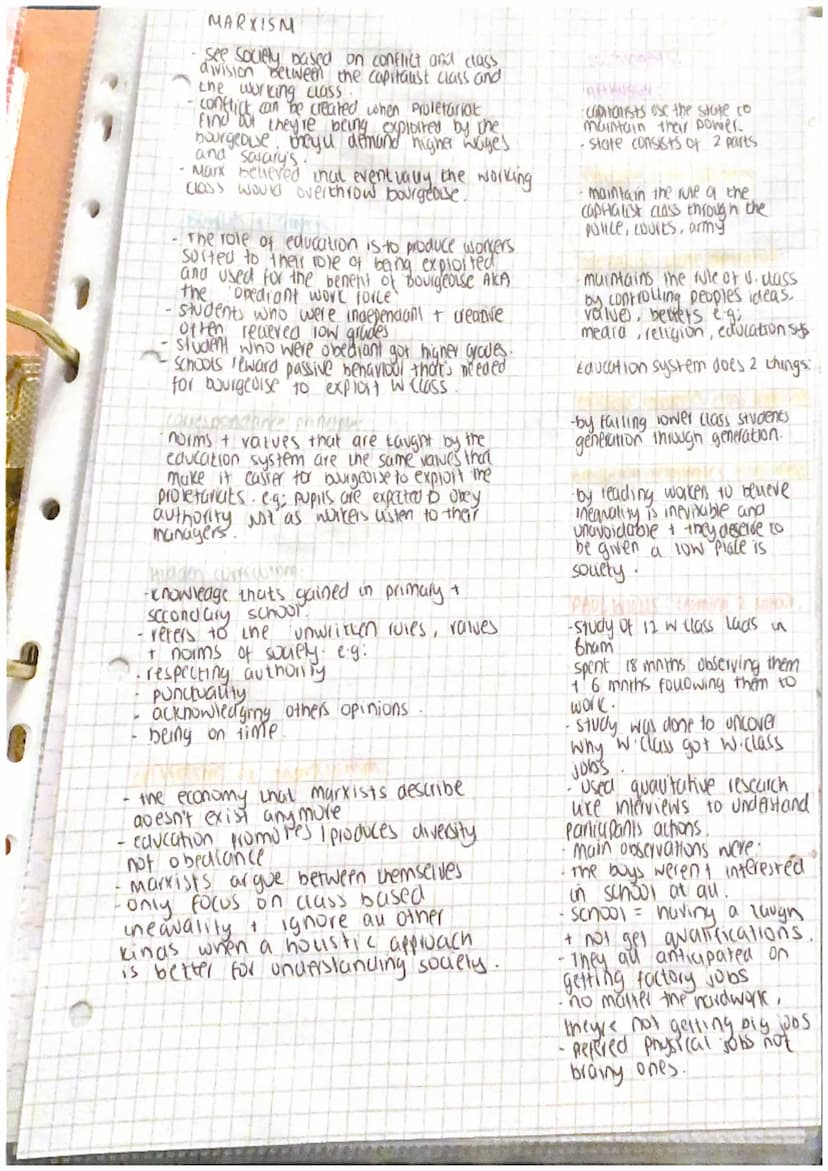 MARXISM
- see society based on conflict and class
division between the capitalist class and
the working class.
- conflict can be created when proletariat
find out they're being exploited by the
bourgeoise, they'll demand higher wages
and salarys.
- Marx believed that eventually the working
class would overthrow bourgeoise.
- The role of education is to produce workers
suited to their role of being exploited
and used for the benefit of bourgeoise AKA
the 'obediant work force'
- students who were independant + creative
often recieved low grades
- student who were obediant got higher grades.
- schools reward passive behaviour that's needed
for bourgeoise to exploit w class.
correspondance principle:
norms + values that are taught by the
education system are the same values that
make it easier for bourgeoise to exploit the
proletariats. e.g; pupils are expected to obey
authority just as workers listen to their
managers.
Hidden curriculum:
- knowledge thats gained in primary +
secondary school.
- refers to the unwritten rules, values
+ norms of society. e.g:
- respecting authority
- punctuality
- acknowledging others opinions.
- being on time
- the economy that marxists describe
doesn't exist anymore
- education promotes / produces diversity
not obediance
- marxists argue between themselves
- only focus on class based
inequality + ignore all other
kinds when a houstic approach
is better for understanding society.
- capitalists use the state to
maintain their power.
- state consists of 2 parts
- maintain the rule of the
capitalist class through the
police, courts, army
- maintains the rule of u. class
by controlling peoples ideas,
values, beliefs e.g;
media, religion, education sys.
Education system does 2 things:
- by failing lower class students
generation through generation.
- by leading workers to believe
inequality is inevitable and
unavoidable + they deserve to
be given a low place is
society.
PAUL WILLIS: Learning 2 labour
- study of 12 w class lads in
Bham
spent 18 mnths observing them
+ 6 mnths following them to
work.
- study was done to uncover
why w.class got w.class
jobs.
- used qualitative research
like interviews to understand
participants actions.
- main observations were:
- the boys weren't interested
in school at all.
- school = having a laugh
+ not get qualifications.
- They all anticipated on
getting factory jobs
- no matter the hardwork,
they're not getting big jobs
- Prefered physical jobs not
brainy ones.